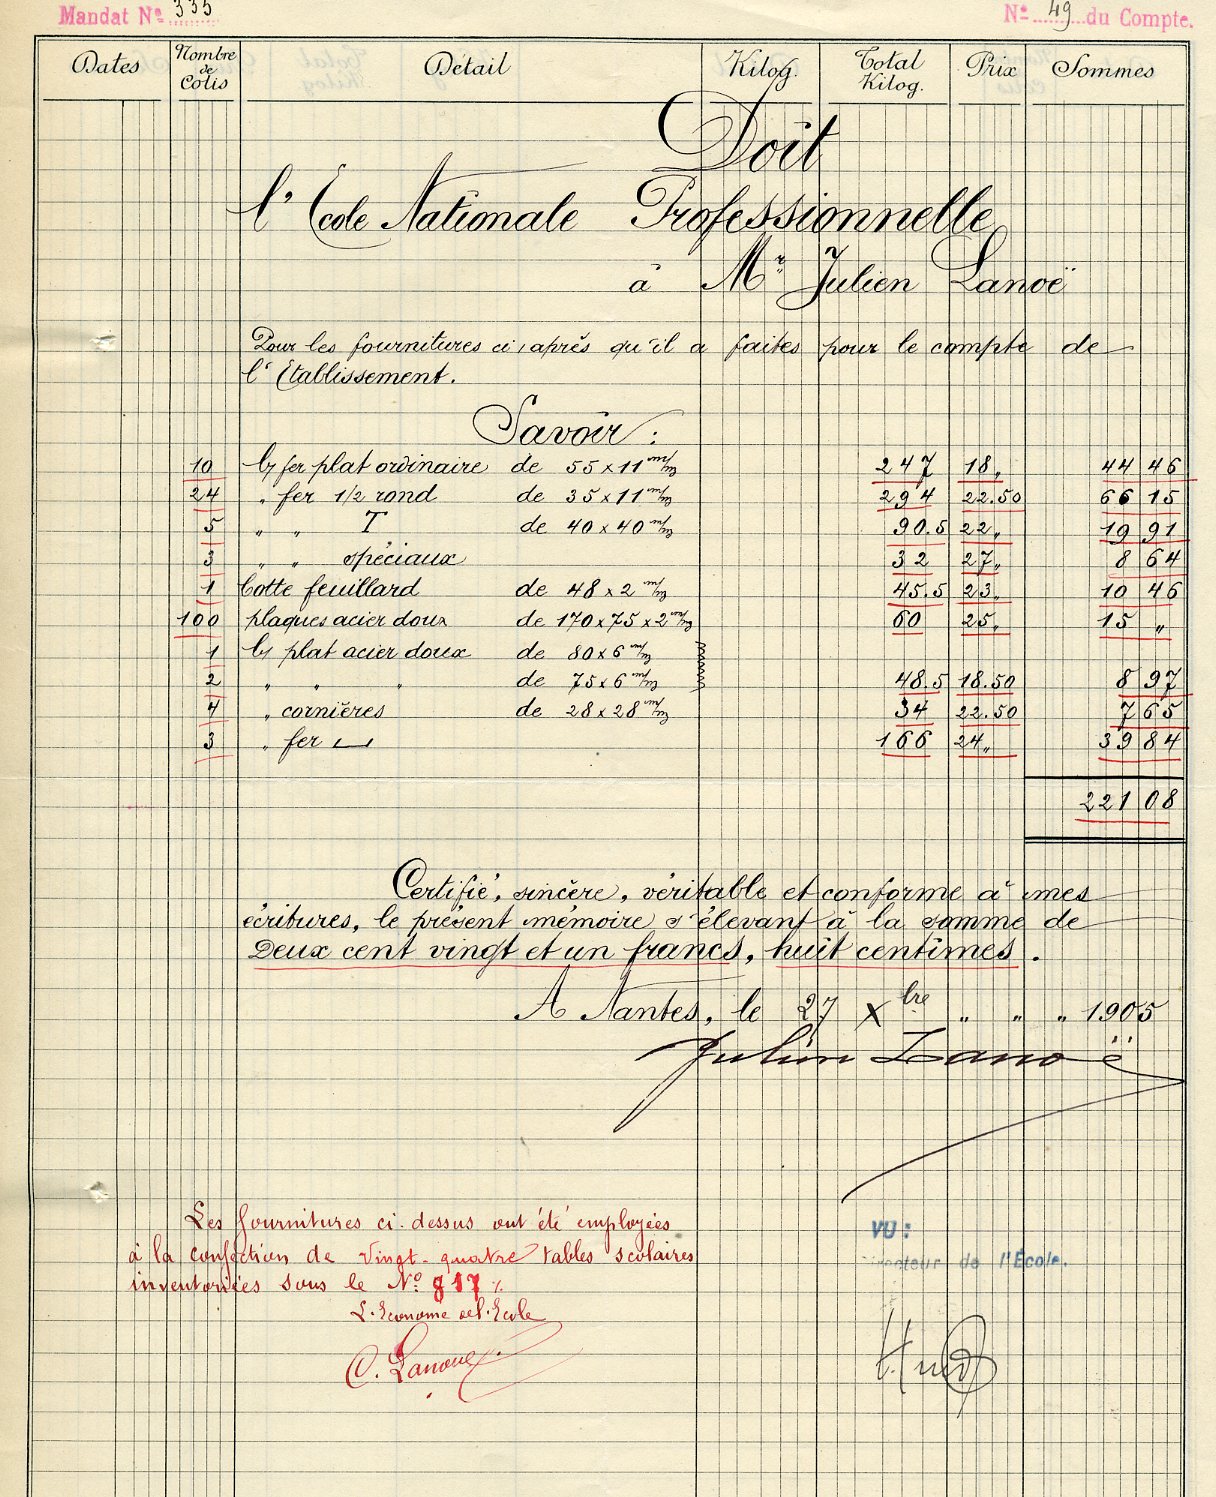 Mandat Nº 335
Nº 49 du Compte.
Dates Nombre de Colis Détail Kilog. Total Kilog. Prix Sommes
Doit
l'École Nationale Professionnelle
à Mr Julien Lanoë
Pour les fournitures ci, après qu'il a faites pour le compte de
l'Établissement.
Savoir:
10 fer plat ordinaire de 55 x 11 m/m 247 18 " 44 46
24 " fer 1/2 rond de 35 x 11 m/m 294 22.50 66 15
5 " " T de 40 x 40 m/m 90.5 22 " 19 91
3 " " spéciaux 32 27 " 8 64
1 botte feuillard de 48 x 2 m/m 45.5 23 " 10 46
100 plaques acier doux de 170 x 75 x 2 m/m 60 25 " 15 "
1 plat acier doux de 80 x 6 m/m
2 " " " de 75 x 6 m/m 48.5 18.50 8 97
4 " cornières de 28 x 28 m/m 34 22.50 7 65
3 " fer 166 24 " 39 84
221 08
Certifié, sincère, véritable et conforme à mes
écritures, le présent mémoire s'élevant à la somme de
Deux cent vingt et un francs, huit centimes.
A Nantes, le 27 Xbre " " " 1905
Julien Lanoë
Les fournitures ci-dessus ont été employées
à la confection de vingt-quatre tables scolaires
inventoriées sous le Nº 817
L'Econome de l'Ecole
C. Lanoue
VU:
Directeur de l'École.